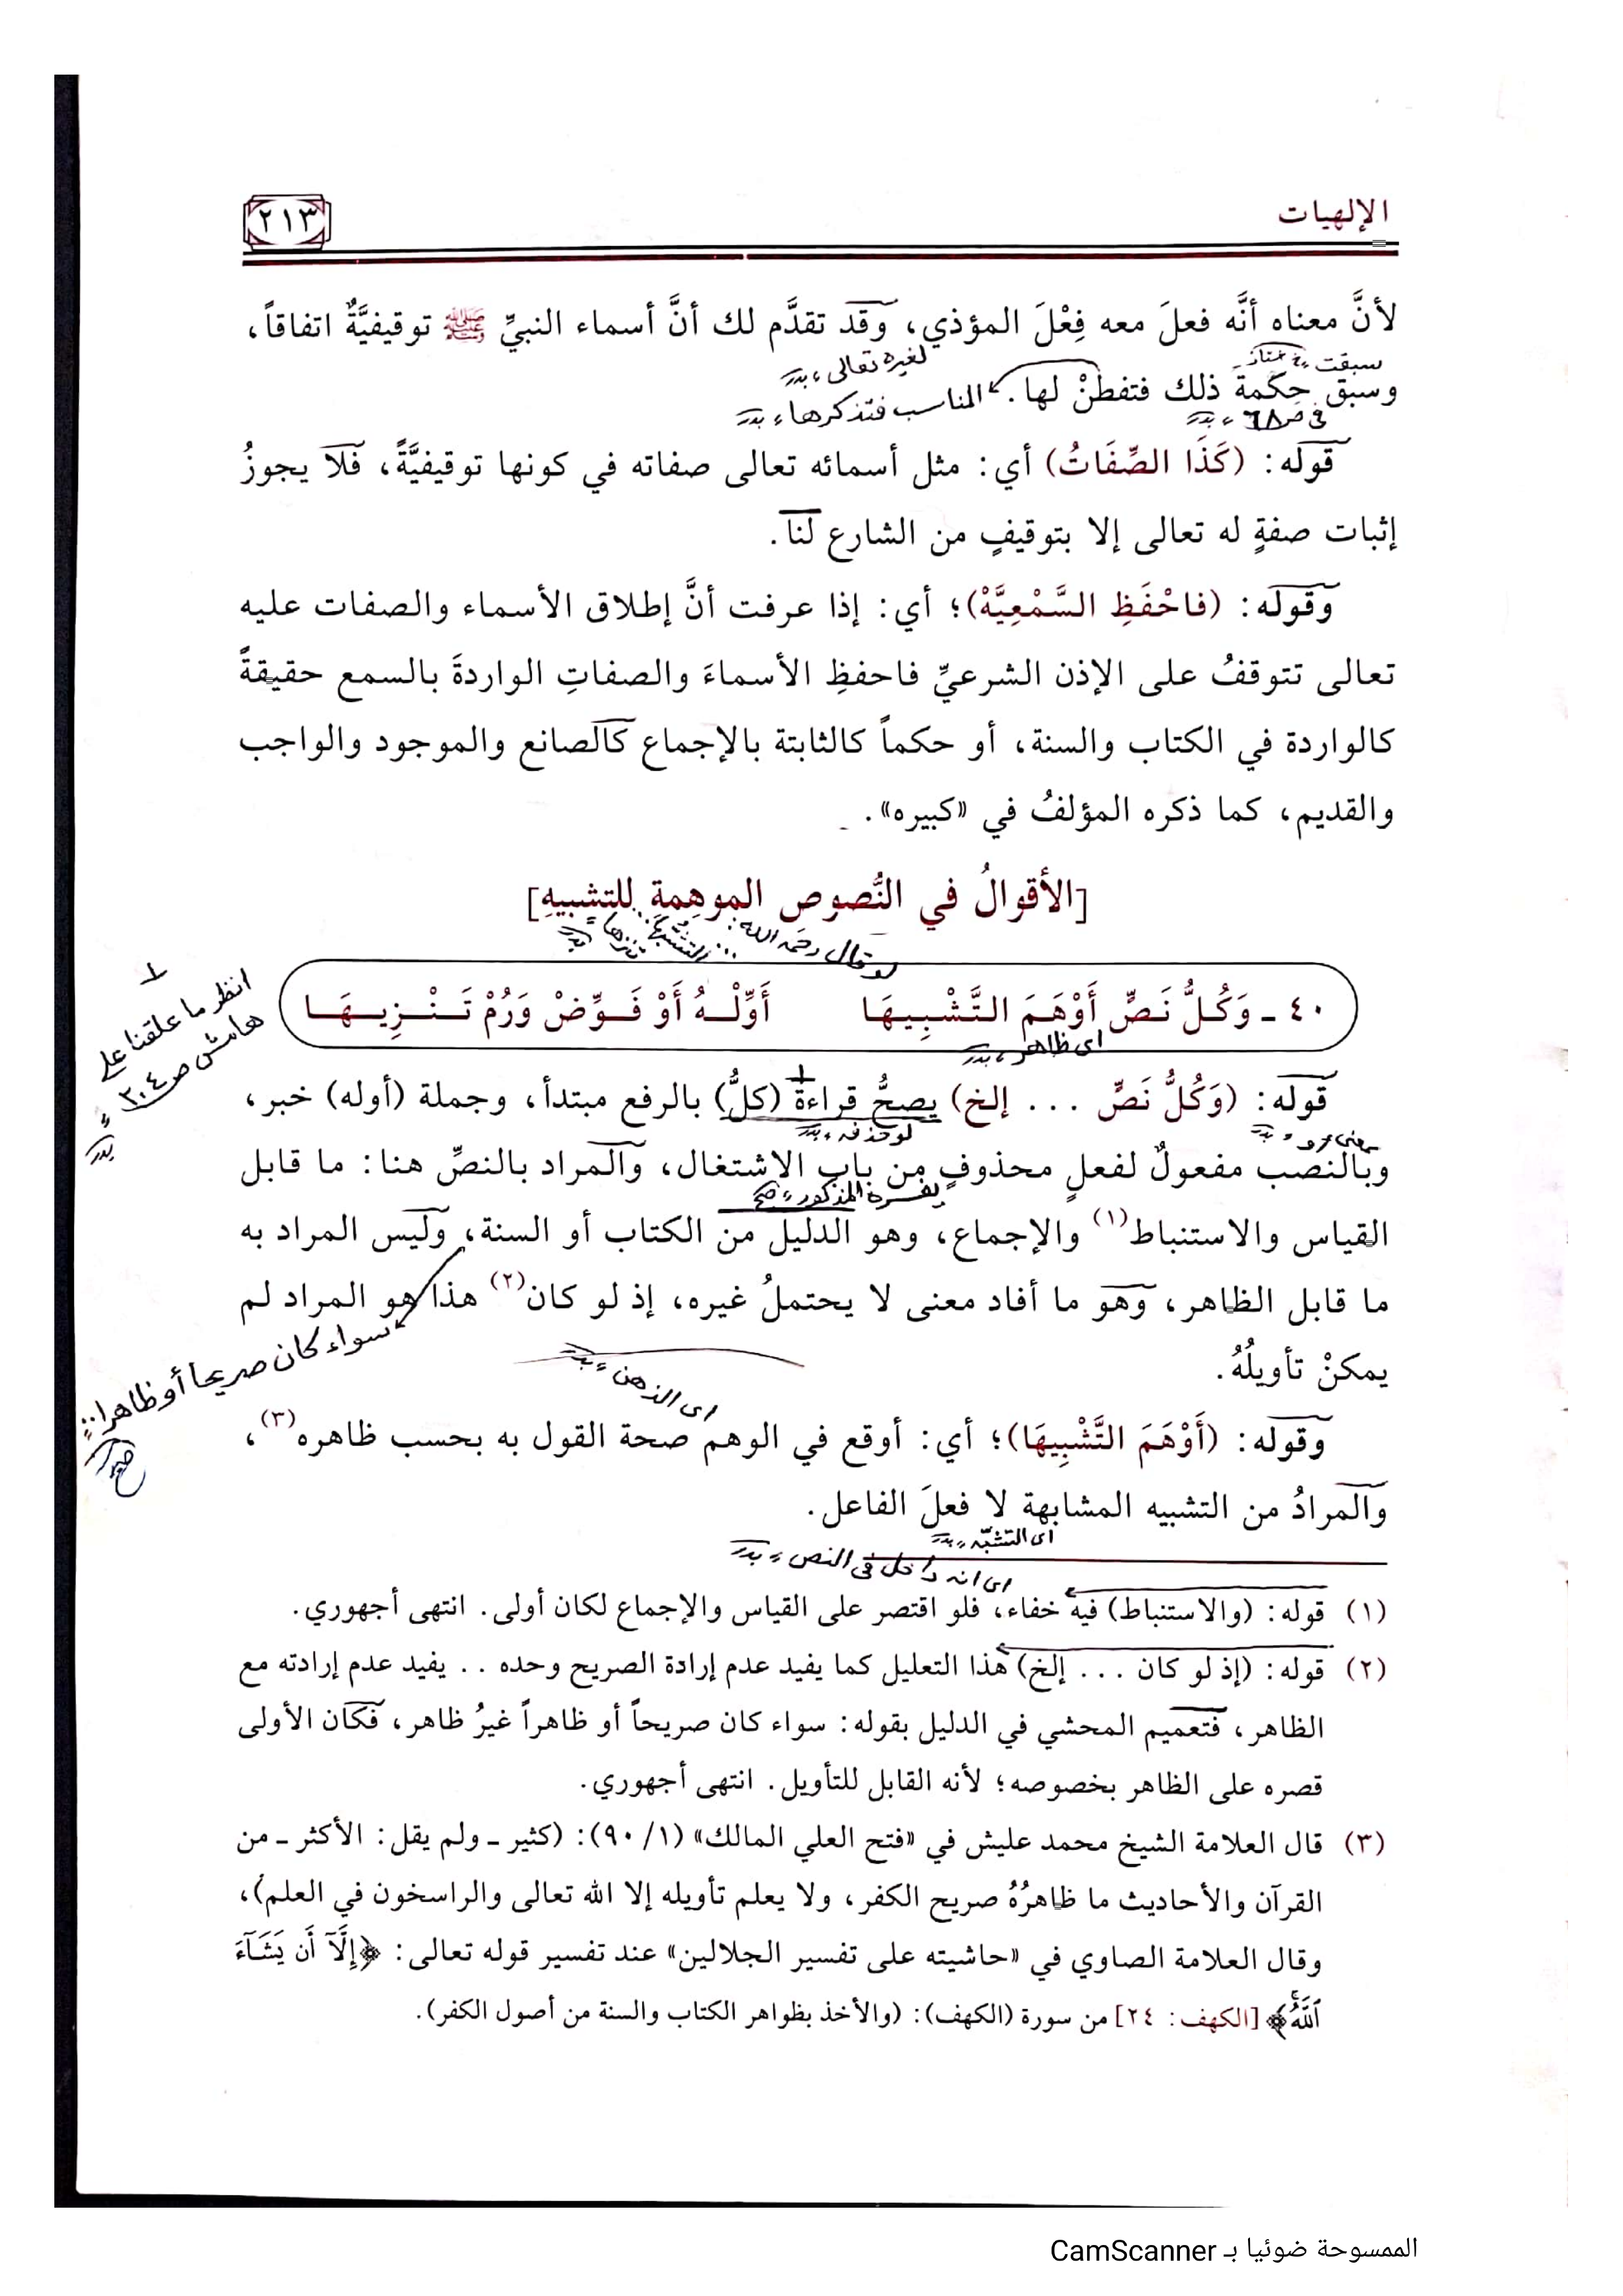 الإلهيات
٢١٣
لأنَّ معناه أنَّه فعلَ معه فِعْلَ المؤذي، وقد تقدَّم لك أنَّ أسماء النبيِّ ﷺ توقيفيَّةٌ اتفاقاً،
سبقت
لغيره تعالى، بدر
وسبق حِكمة ذلك فتفطنْ لها.
المناسب فتذكرها، بدر
في ص ٦٨، بدر
قوله: (كَذَا الصِّفَاتُ) أي: مثل أسمائه تعالى صفاته في كونها توقيفيَّةً، فلا يجوزُ
إثبات صفةٍ له تعالى إلا بتوقيفٍ من الشارع لنا.
وقوله: (فاحْفَظِ السَّمْعِيَّهْ)؛ أي: إذا عرفت أنَّ إطلاق الأسماء والصفات عليه
تعالى تتوقفُ على الإذن الشرعيِّ فاحفظِ الأسماءَ والصفاتِ الواردةَ بالسمع حقيقةً
كالواردة في الكتاب والسنة، أو حكماً كالثابتة بالإجماع كالصانع والموجود والواجب
والقديم، كما ذكره المؤلفُ في «كبيره».
[الأقوالُ في النُّصوص الموهِمةِ للتشبيهِ]
لو قال رحمه الله: ... التشبُّهَا.. تنزها، بدر
٤٠ ـ وَكُلُّ نَصٍّ أَوْهَمَ التَّشْبِيهَا أَوِّلْهُ أَوْ فَوِّضْ وَرُمْ تَنْزِيهَا
انظر ما علقنا على
هامش ص ٢٠٤،
بدر
اى ظاهر، بدر
قوله: (وَكُلُّ نَصٍّ ... إلخ) يصحُّ قراءةُ (كلُّ) بالرفع مبتدأ، وجملة (أوله) خبر،
لو حذفه، بدر
وبالنصب مفعولٌ لفعلٍ محذوفٍ من باب الاشتغال، والمراد بالنصِّ هنا: ما قابل
يفسره المذكور، صح
القياس والاستنباط(١) والإجماع، وهو الدليل من الكتاب أو السنة، وليس المراد به
ما قابل الظاهر، وهو ما أفاد معنى لا يحتملُ غيره، إذ لو كان(٢) هذا هو المراد لم
سواء كان صريحا أو ظاهرا
يمكنْ تأويلُهُ.
اى الذهن، بدر
وقوله: (أَوْهَمَ التَّشْبِيهَا)؛ أي: أوقع في الوهم صحة القول به بحسب ظاهره(٣)،
والمرادُ من التشبيه المشابهة لا فعلَ الفاعل.
اى التشبّه، بدر
اى انه داخل فى النص، بدر
(١) قوله: (والاستنباط) فيه خفاء، فلو اقتصر على القياس والإجماع لكان أولى. انتهى أجهوري.
(٢) قوله: (إذ لو كان ... إلخ) هذا التعليل كما يفيد عدم إرادة الصريح وحده .. يفيد عدم إرادته مع
الظاهر، فتعميم المحشي في الدليل بقوله: سواء كان صريحاً أو ظاهراً غيرُ ظاهر، فكان الأولى
قصره على الظاهر بخصوصه؛ لأنه القابل للتأويل. انتهى أجهوري.
(٣) قال العلامة الشيخ محمد عليش في «فتح العلي المالك» (١/ ٩٠): (كثير ـ ولم يقل: الأكثر ـ من
القرآن والأحاديث ما ظاهرُهُ صريح الكفر، ولا يعلم تأويله إلا الله تعالى والراسخون في العلم)،
وقال العلامة الصاوي في «حاشيته على تفسير الجلالين» عند تفسير قوله تعالى: ﴿إِلَّآ أَن يَشَآءَ
ٱللَّهُ﴾ [الكهف: ٢٤] من سورة (الكهف): (والأخذ بظواهر الكتاب والسنة من أصول الكفر).
الممسوحة ضوئيا بـ CamScanner